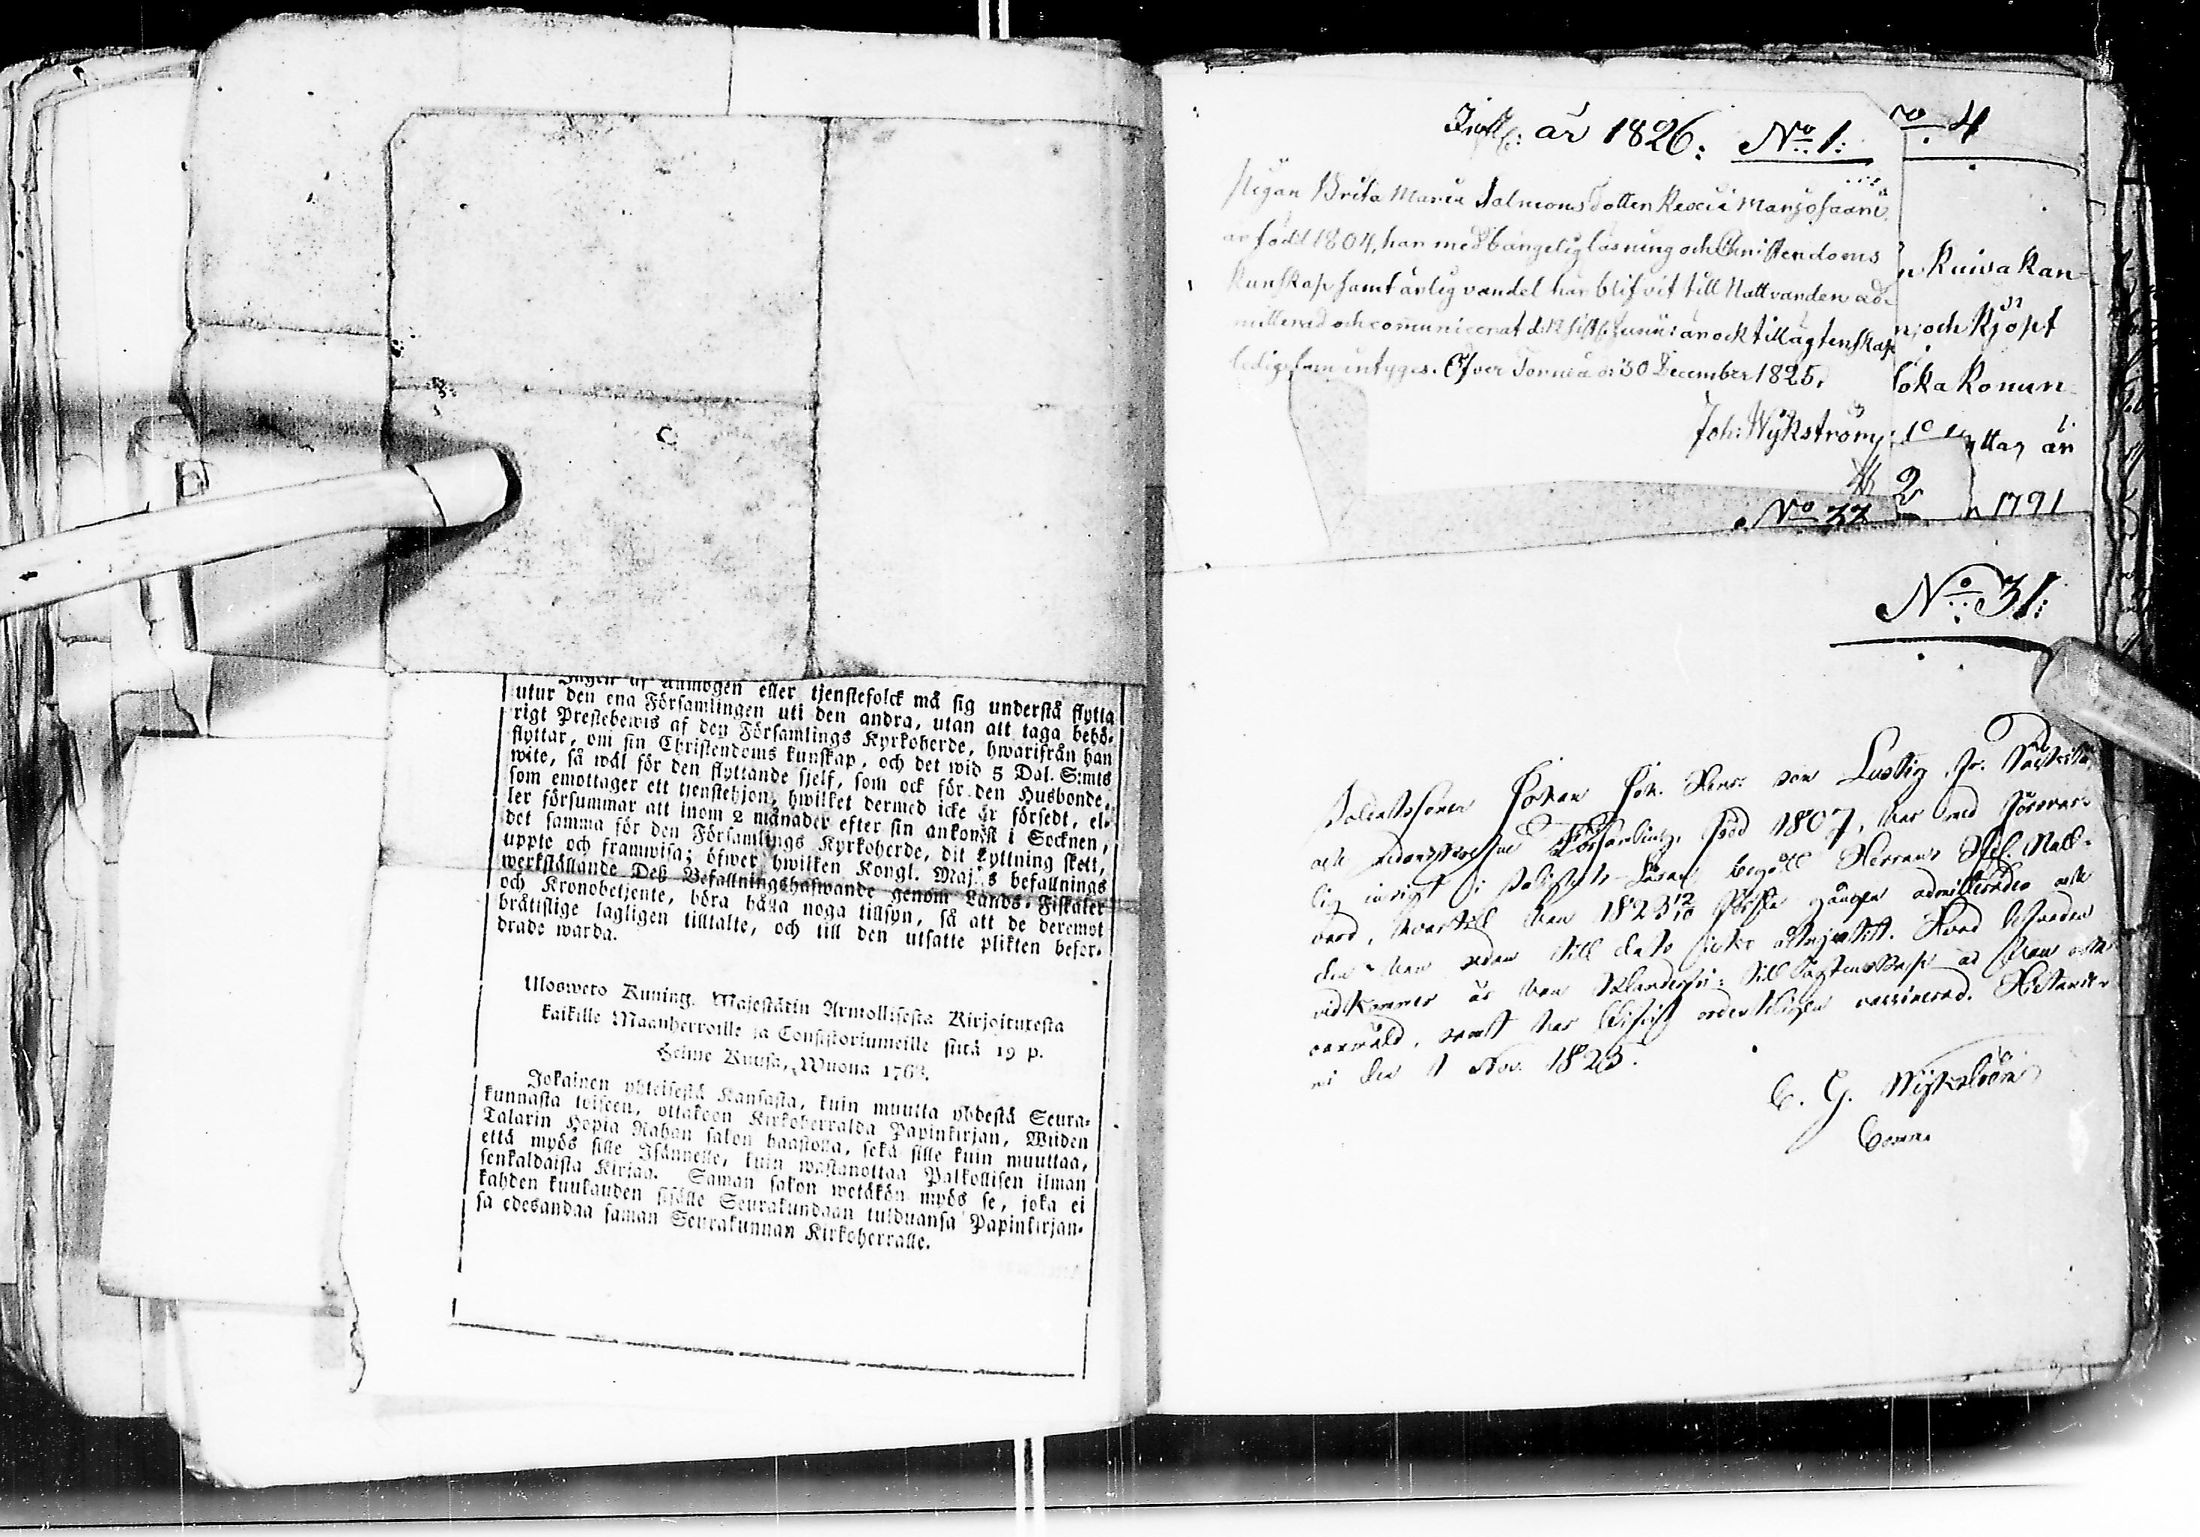 Ingen af Allmogen eller tjenstefolck må sig understå flytta
utur den ena Församlingen uti den andra, utan att taga behö-
rigt Prestebewis af den Församlings Kyrkoherde, hwarifrån han
flyttar, om sin Christendoms kunskap, och det wid 5 Dal. S:mts
wite, så wäl för den flyttande sjelf, som ock för den Husbonde,
som emottager ett tjenstehjon, hwilket dermed icke är försedt, el-
ler försummar att inom 2 månader efter sin ankomst i Socknen,
det samma för den Församlings Kyrkoherde, dit flyttning skett,
uppte och framwisa; öfwer hwilken Kongl. Maj:s befallnings
werkställande Deß Befallningshafwande genom Lands-Fiskaler
och Kronobetjente, böra hålla noga tillsyn, så att de deremot
bråtislige lagligen tilltalte, och till den utsatte plikten befor-
drade warda.
Ulosweto Kuning. Majestätin Armollisesta Kirjoituxesta
kaikille Maanherroille ja Consistoriumeille siitä 19 p.
Helme Kuusa, Wuona 1762.
Jokainen yhteisestä Kansasta, kuin muutta yhdestä Seura-
kunnasta toiseen, ottakoon Kirkoherralda Papinkirjan, Wiiden
Talarin Hopia Rahan sakon haastolla, sekä sille kuin muuttaa,
että myös sille Isännelle, kuin wastanottaa Palkollisen ilman
senkaldaista Kirjaa. Saman sakon wetäkön myös se, joka ei
kahden kuukauden sisälle Seurakundaan tulduansa Papinkirjan-
sa edesandaa saman Seurakunnan Kirkoherralle.
år 1826: No 1:
Pigan Brita Maria Salmonsdotter Rexi i Marjosaari
är född 1804, har med bängelig läsning och Christendoms
kunskap samt ärlig vandel har blifvit till Nattvarden ad-
mitterad och communicerat d. 12 sistl. är ock till ägtenskap
ledig som intyges. Öfver Torneå d: 30 December 1825.
Joh: Wykström
No 4
n Kuiva kan-
n, och Kjöpt
loka konun-
ttar än
n 1791
2
No 33
No 31:
Johan Joh. Hens: son Lustig fr.
och Församling, född 1807, har med försvar-
lig insigt i Salighets-Läran begått Herrans Hel. Natt-
vard, hvartill han 1823 12/10 första gången admitterades och
den han sedan till dato icke Hvad lefnaden
vidkommer är han till Ägtenskap är han
samt har blifvit ordentligen vaccinerad. Hietanie-
mi den 1 Nov. 1823.
C. G. Wykström
Comm.